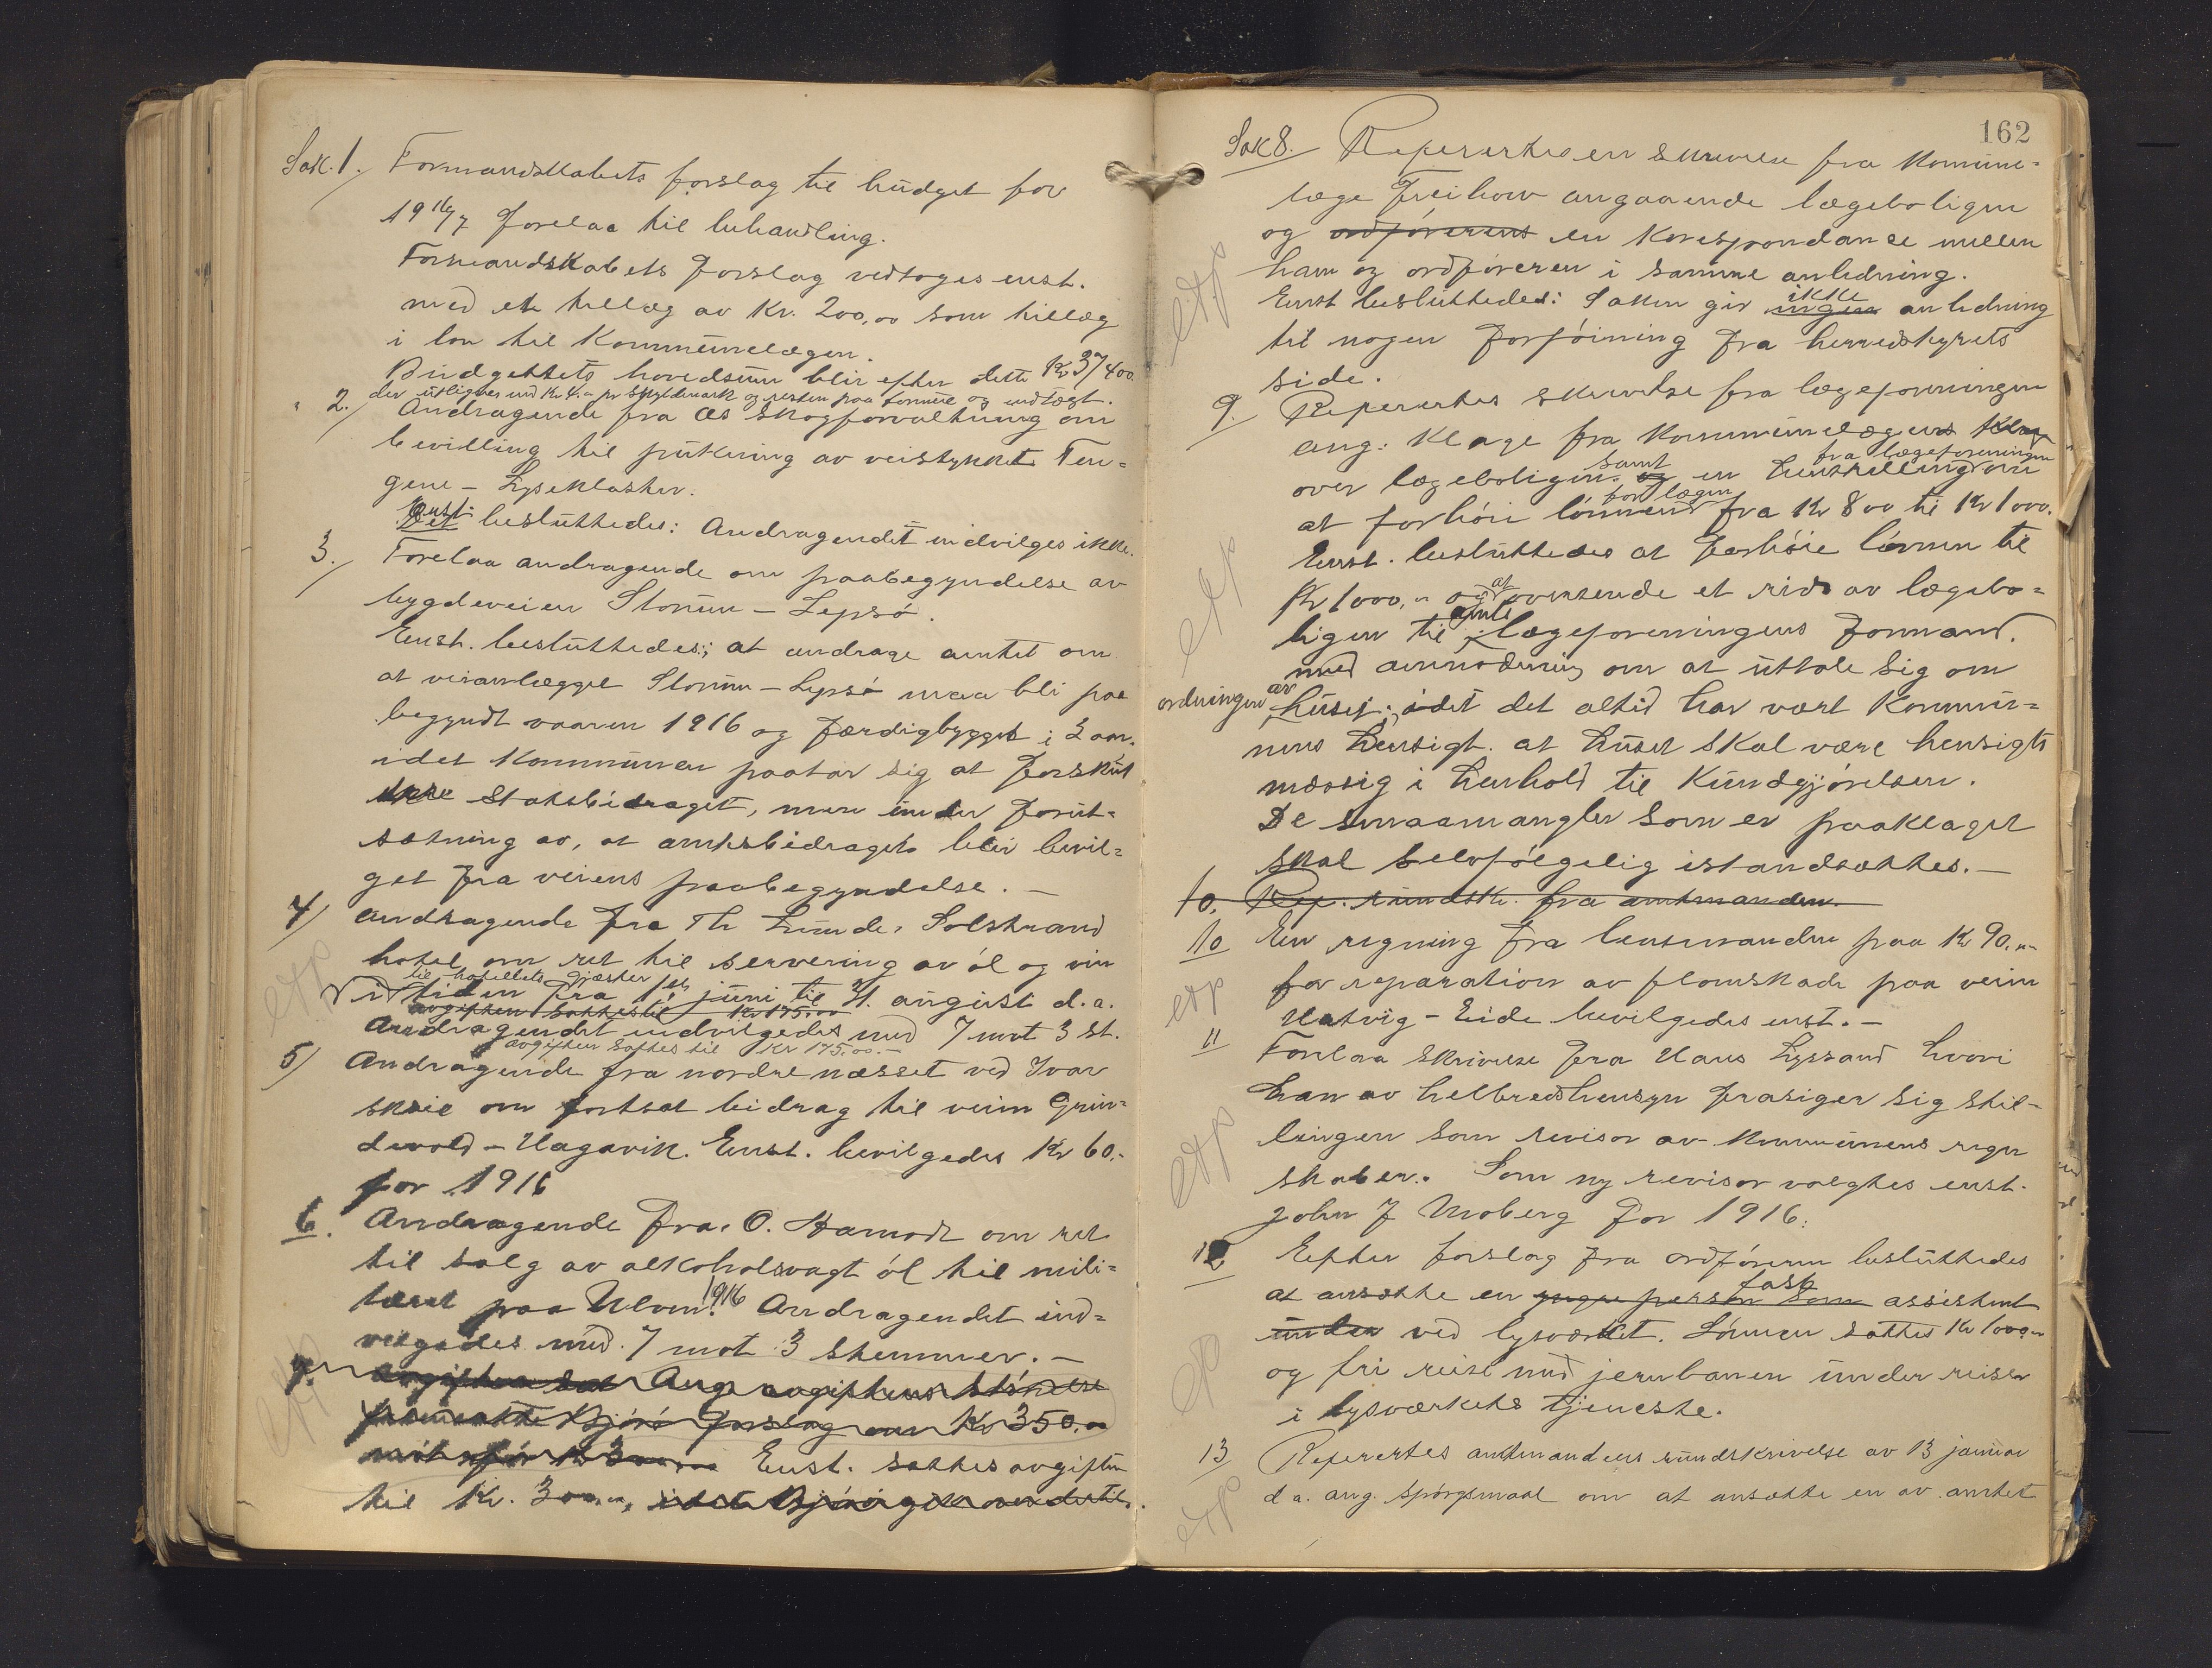 Sak. 1. Formandskabets forslag til budget for
19 16/7 forelaa til behandling.
Formandskabets forslag vedtoges enst.
med et tillæg av Kr. 200,00 som tillæg
i løn til Kommunelægen.
Budgettets hovedsum blir efter dette Kr 37400.
der utlignes med Kr 4.00 pr skyldmark og resten paa formue og indtægt.
2. Andragende fra Os skogforvaltning om
bevilling til pukning av veistykket Ten=
gene - Lysekloster.
Enst. besluttedes: Andragendet indvilges ikke.
3. Forelaa andragende om paabegyndelse av
bygdeveien Storum - Lepsø.
Enst. besluttedes: at andrage amtet om
at veianlægget Storum - Lepsø maa bli paa
begyndt vaaren 1916 og færdigbygget i 2 aar.
idet Kommunen paatar sig at forskut
tere statsbidraget, men under forut=
sætning av, at amtsbidraget blir bevil=
get fra veiens paabegyndelse. -
4) Andragende fra Th Lunde, Solstrand
hotel om ret til servering av øl og vin
til hotellets gjæster
i tiden fra 1ste juni til 31. august d.a.
avgiften sættes til Kr 175.00
Andragendet indvilgedes med 7 mot 3 st.
avgiften sættes til Kr 175.00.-
5) Andragende fra nordre næsset ved Ivar
Skeie om fortsat bidrag til veien Grin=
devold - Hagavik. Enst. bevilgedes Kr 60.-
for 1916
6. Andragende fra O. Hamre om ret
til salg av alkoholsvagt øl til mili=
tæret paa Ulven 1916. Andragendet ind=
vilgedes med 7 mot 3 stemmer. -
7. avgiften sat Ang avgiftens størrelse
fremsatte Bjørø forslag om Kr 350.00
mot før Kr 300,00 Enst. sattes avgiften
til Kr. 300.00, idet Bjørø gik over dertil.
162
Sak 8. Refererdtes en skrivelse fra Komune=
læge Freihow angaaende lægeboligen
og ordførerens en Korespondanse mellem
ham og ordføreren i samme anledning.
Enst besluttedes: Saken gir ingen ikke anledning
til nogen forføining fra herredstyrets
side.
9. Refererdtes skrivelse fra lægeforeningen
ang: Klage fra Kommunelægens Klage
over lægeboligen. og samt en henstilling fra lægeforeningen om
at forhøie lønnen for lægen fra Kr 800 til Kr 1000.
Enst. besluttedes at forhøie lønnen til
Kr 1000,- og at oversende et rids av lægebo=
ligen til amts lægeforeningens formand.
med anmodning om at uttale sig om
ordningen av huset; idet det altid har vært Kommu=
nens hensigt. at huset skal være hensigts
mæssig i henhold til Kundgjørelsen.
De smaamangler som er paaklaget
skal selvfølgelig istandsættes. -
10. Ref. rundskr. fra amtmanden.
10 En regning fra lensmanden paa Kr 90.00
for reparation av flomskade paa veien
Hatvig - Eide bevilgedes enst. -
11 Forelaa skrivelse fra Hans Lyssand hvori
han av helbredshensyn frasiger sig stil=
lingen som revisor av Kommunens regn
skaber. Som ny revisor valgtes enst.
John J Moberg for 1916.
12 Efter forslag fra ordføreren besluttedes
at ansætte en yngre person som fast assistent
under ved lysværket. Lønnen sættes Kr 1000.-
og fri reise med jernbanen under reiser
i lysværkets tjeneste.
13 Refererdtes amtmandens rundskrivelse av 13 januar
d a. ang. spørgsmaal om at ansætte en av amtet